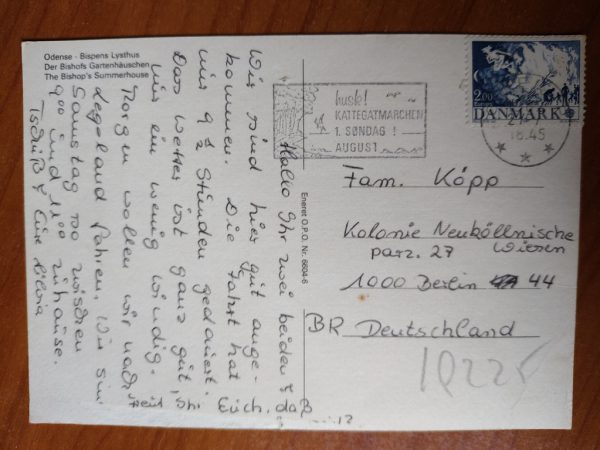 Odense - Bispens Lysthus
Der Bishofs Gartenhäuschen
The Bishop's Summerhouse
Hallo Ihr zwei beiden!
Wir sind hier gut ange-
kommen. Die Fahrt hat
nur 9 1/2 Stunden gedauert.
Das Wetter ist ganz gut,
nur ein wenig windig.
Morgen wollen wir nach
Legoland fahren. Wir sind
Samstag so zwischen
9 00 und 11 00 zuhause.
Tschüß Eure Silvia
Freut Ihr Euch, daß
Eneret O.P.O. Nr. 6604-6
husk!
KATTEGATMARCHEN
1. SØNDAG I
AUGUST
18.45
2.00
DANMARK
Fam. Köpp
Kolonie Neuköllnische
parz. 27 Wiesen
1000 Berlin 44
BR Deutschland